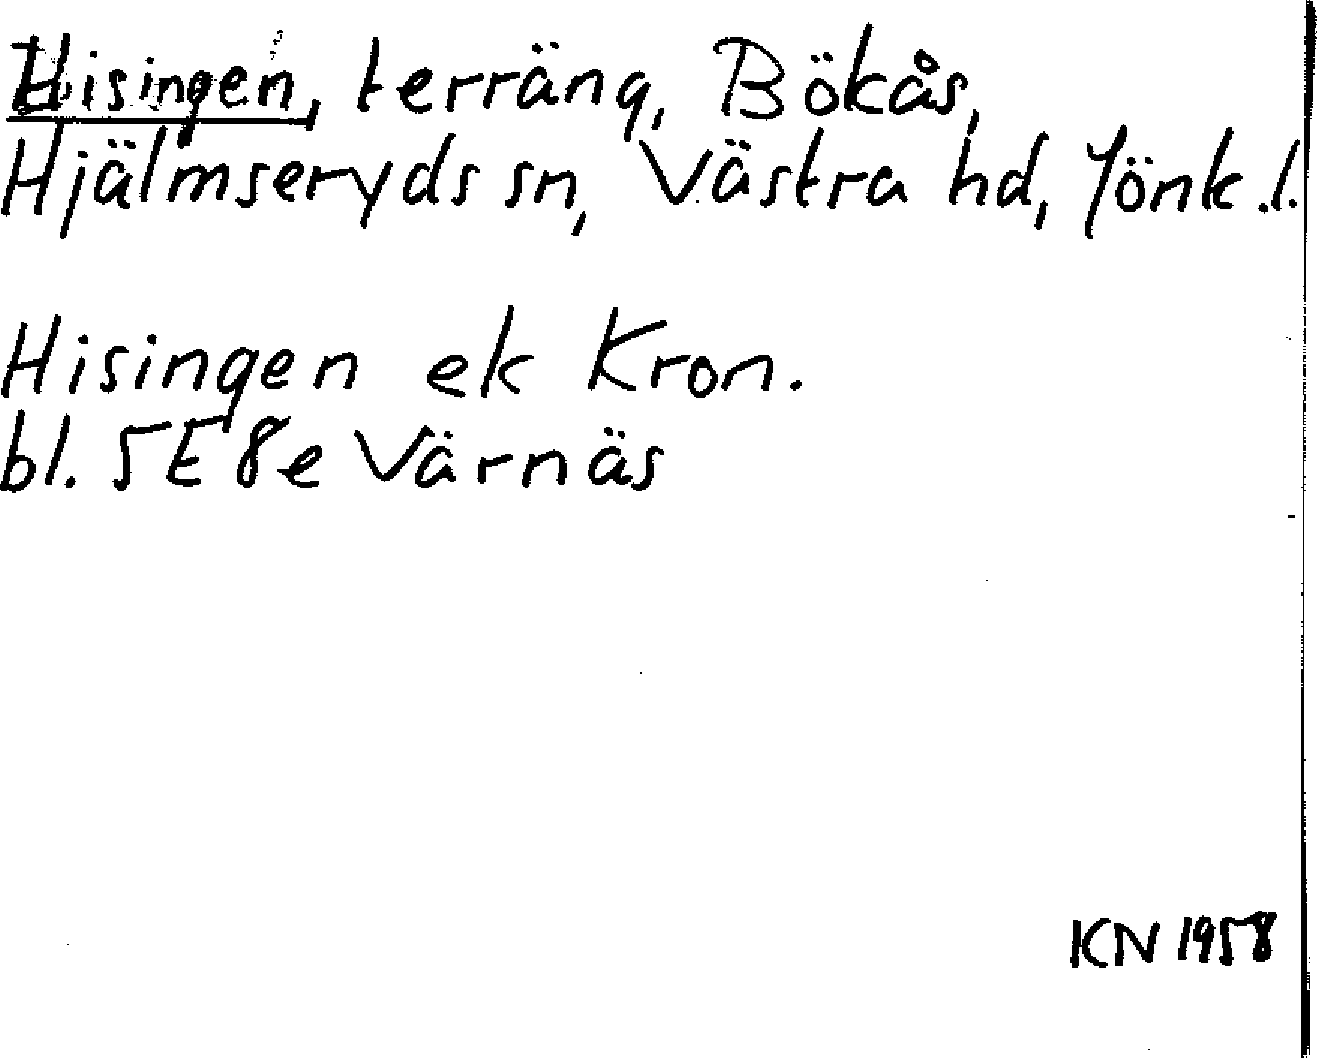 Hisingen, terräng, Bökås,
Hjälmseryds sn, Västra hd, Jönk.l.
Hisingen ek Kron.
bl. 5E8e Värnäs
KN 1958